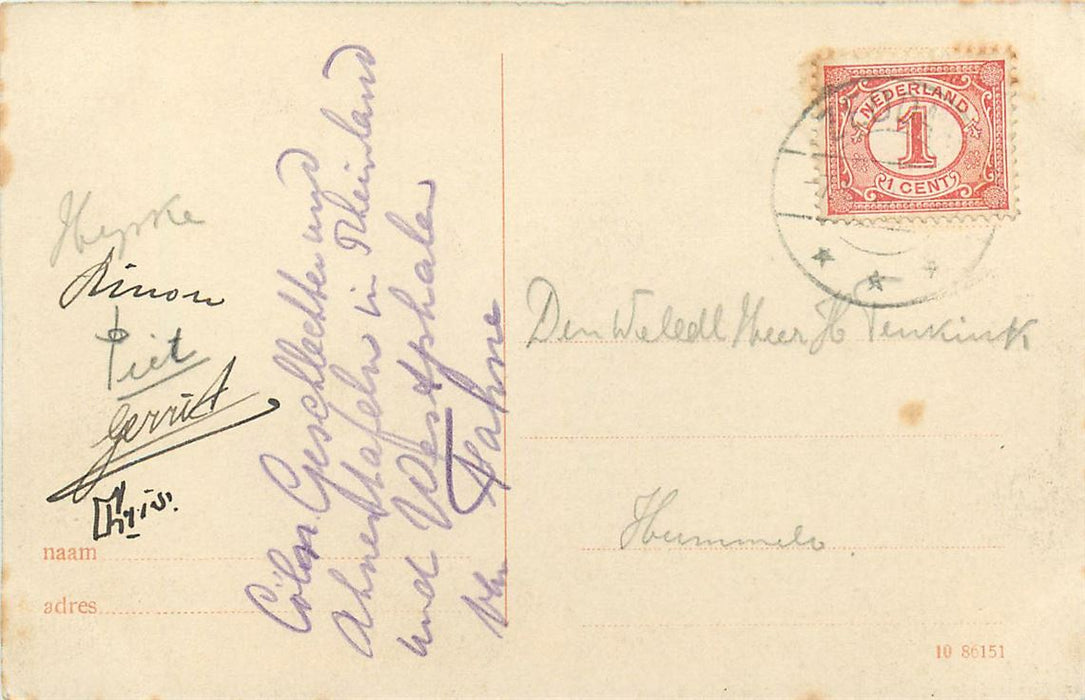 Heyske
Rinon
Piet
Gerrit
Thijs.
naam
adres
Cöln. Geschlechter und
Ahnentafeln in Rheinland
und Westphalen
von Fahne
NEDERLAND
1
1 CENT
Den Weledl Heer H Tenkink
Hummelo
10 86151